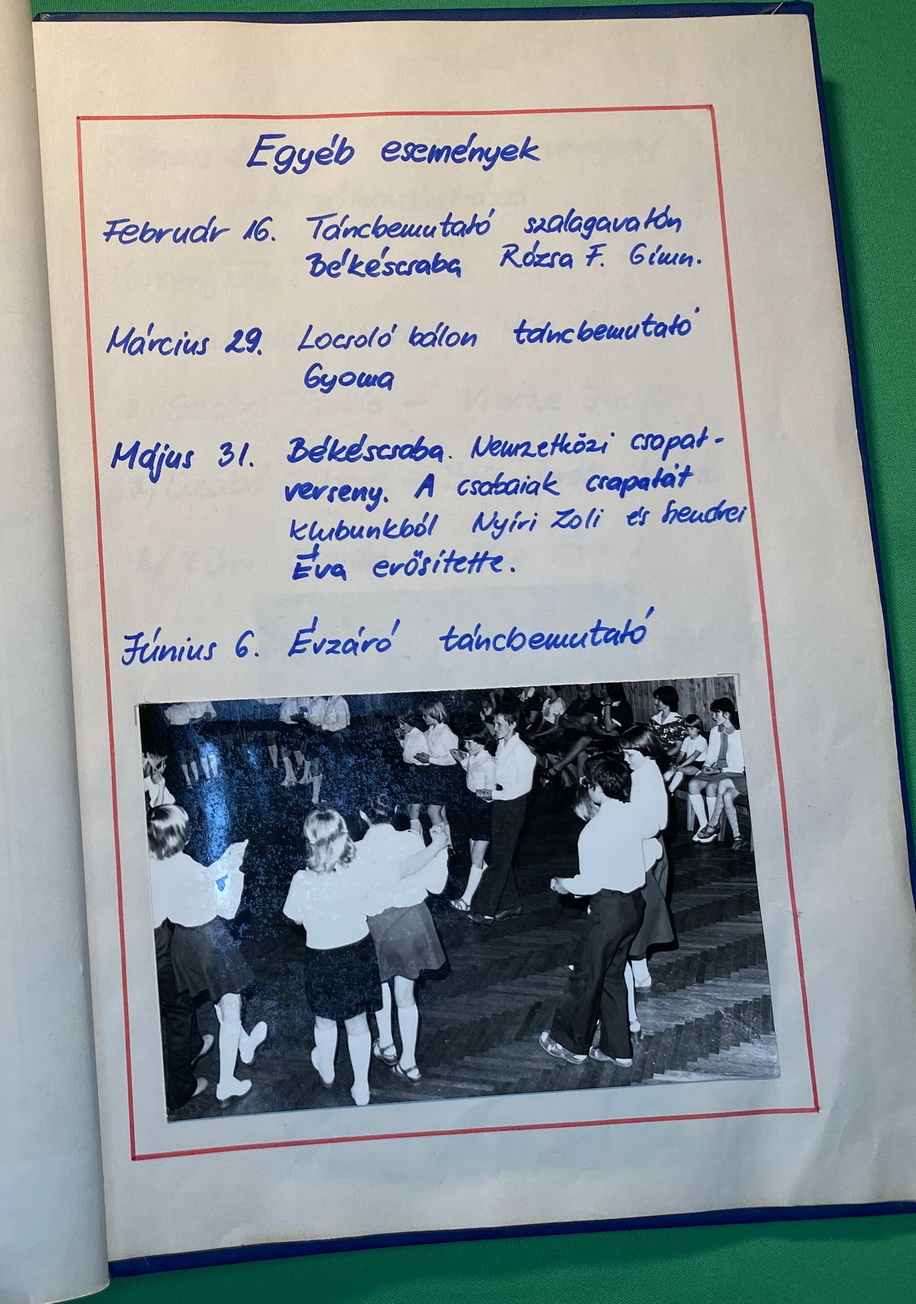 Egyéb események
Február 16. Táncbemutató szalagavatón
Békéscsaba Rózsa F. Gimn.
Március 29. Locsoló bálon táncbemutató
Gyoma
Május 31. Békéscsaba. Nemzetközi csapat-
verseny. A csabaiak csapatát
klubunkból Nyíri Zoli és
Éva erősítette.
Június 6. Évzáró táncbemutató